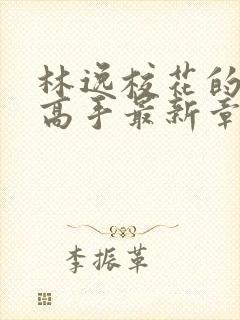 林逸校花的
高手最新章
李振革